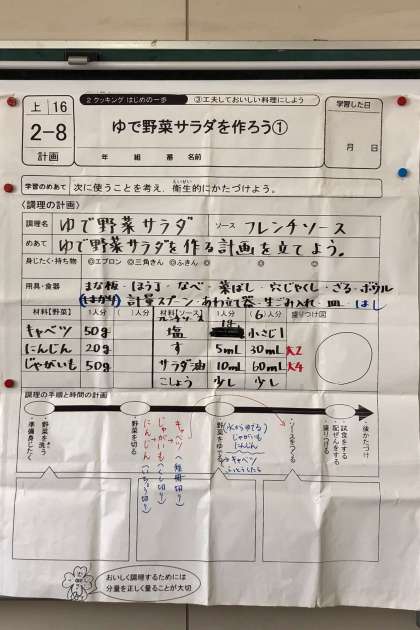 上 16
2-8
計画
2 クッキング はじめの一歩
③工夫しておいしい料理にしよう
ゆで野菜サラダを作ろう①
年 組 番 名前
学習した日
月 日
学習のめあて 次に使うことを考え,衛生的にかたづけよう。
えいせい
〈調理の計画〉
調理名 ゆで野菜サラダ ソース フレンチソース
めあて ゆで野菜サラダを作る計画を立てよう。
身じたく・持ち物 ◎エプロン ◎三角きん ◎ふきん ◎ ◎ ◎
用具・食器 まな板・ほう丁・なべ・菜ばし・穴じゃくし・ざる・ボウル
(はかり) 計量スプーン・あわ立て器・生ごみ入れ・皿・はし
材料【野菜】 1人分 ( )人分 材料【ソース】 1人分 (6)人分 盛りつけ図
フレンチソース
キャベツ 50g 塩 小さじ1
にんじん 20g す 5mL 30mL 大2
じゃがいも 50g サラダ油 10mL 60mL 大4
こしょう 少し 少し
調理の手順と時間の計画
・準備身じたく
・野菜を洗う
・野菜を切る
にんじん(いちょう切り)
じゃがいも
キャベツ(短冊切り)
・野菜をゆでる
(水からゆでる)
じゃがいも
にんじん
キャベツ
ふっとうしたら
・ソースをつくる
・盛りつける
・配ぜんをする
・試食をする
・後かたづけ
おいしく調理するためには
分量を正しく量ることが大切